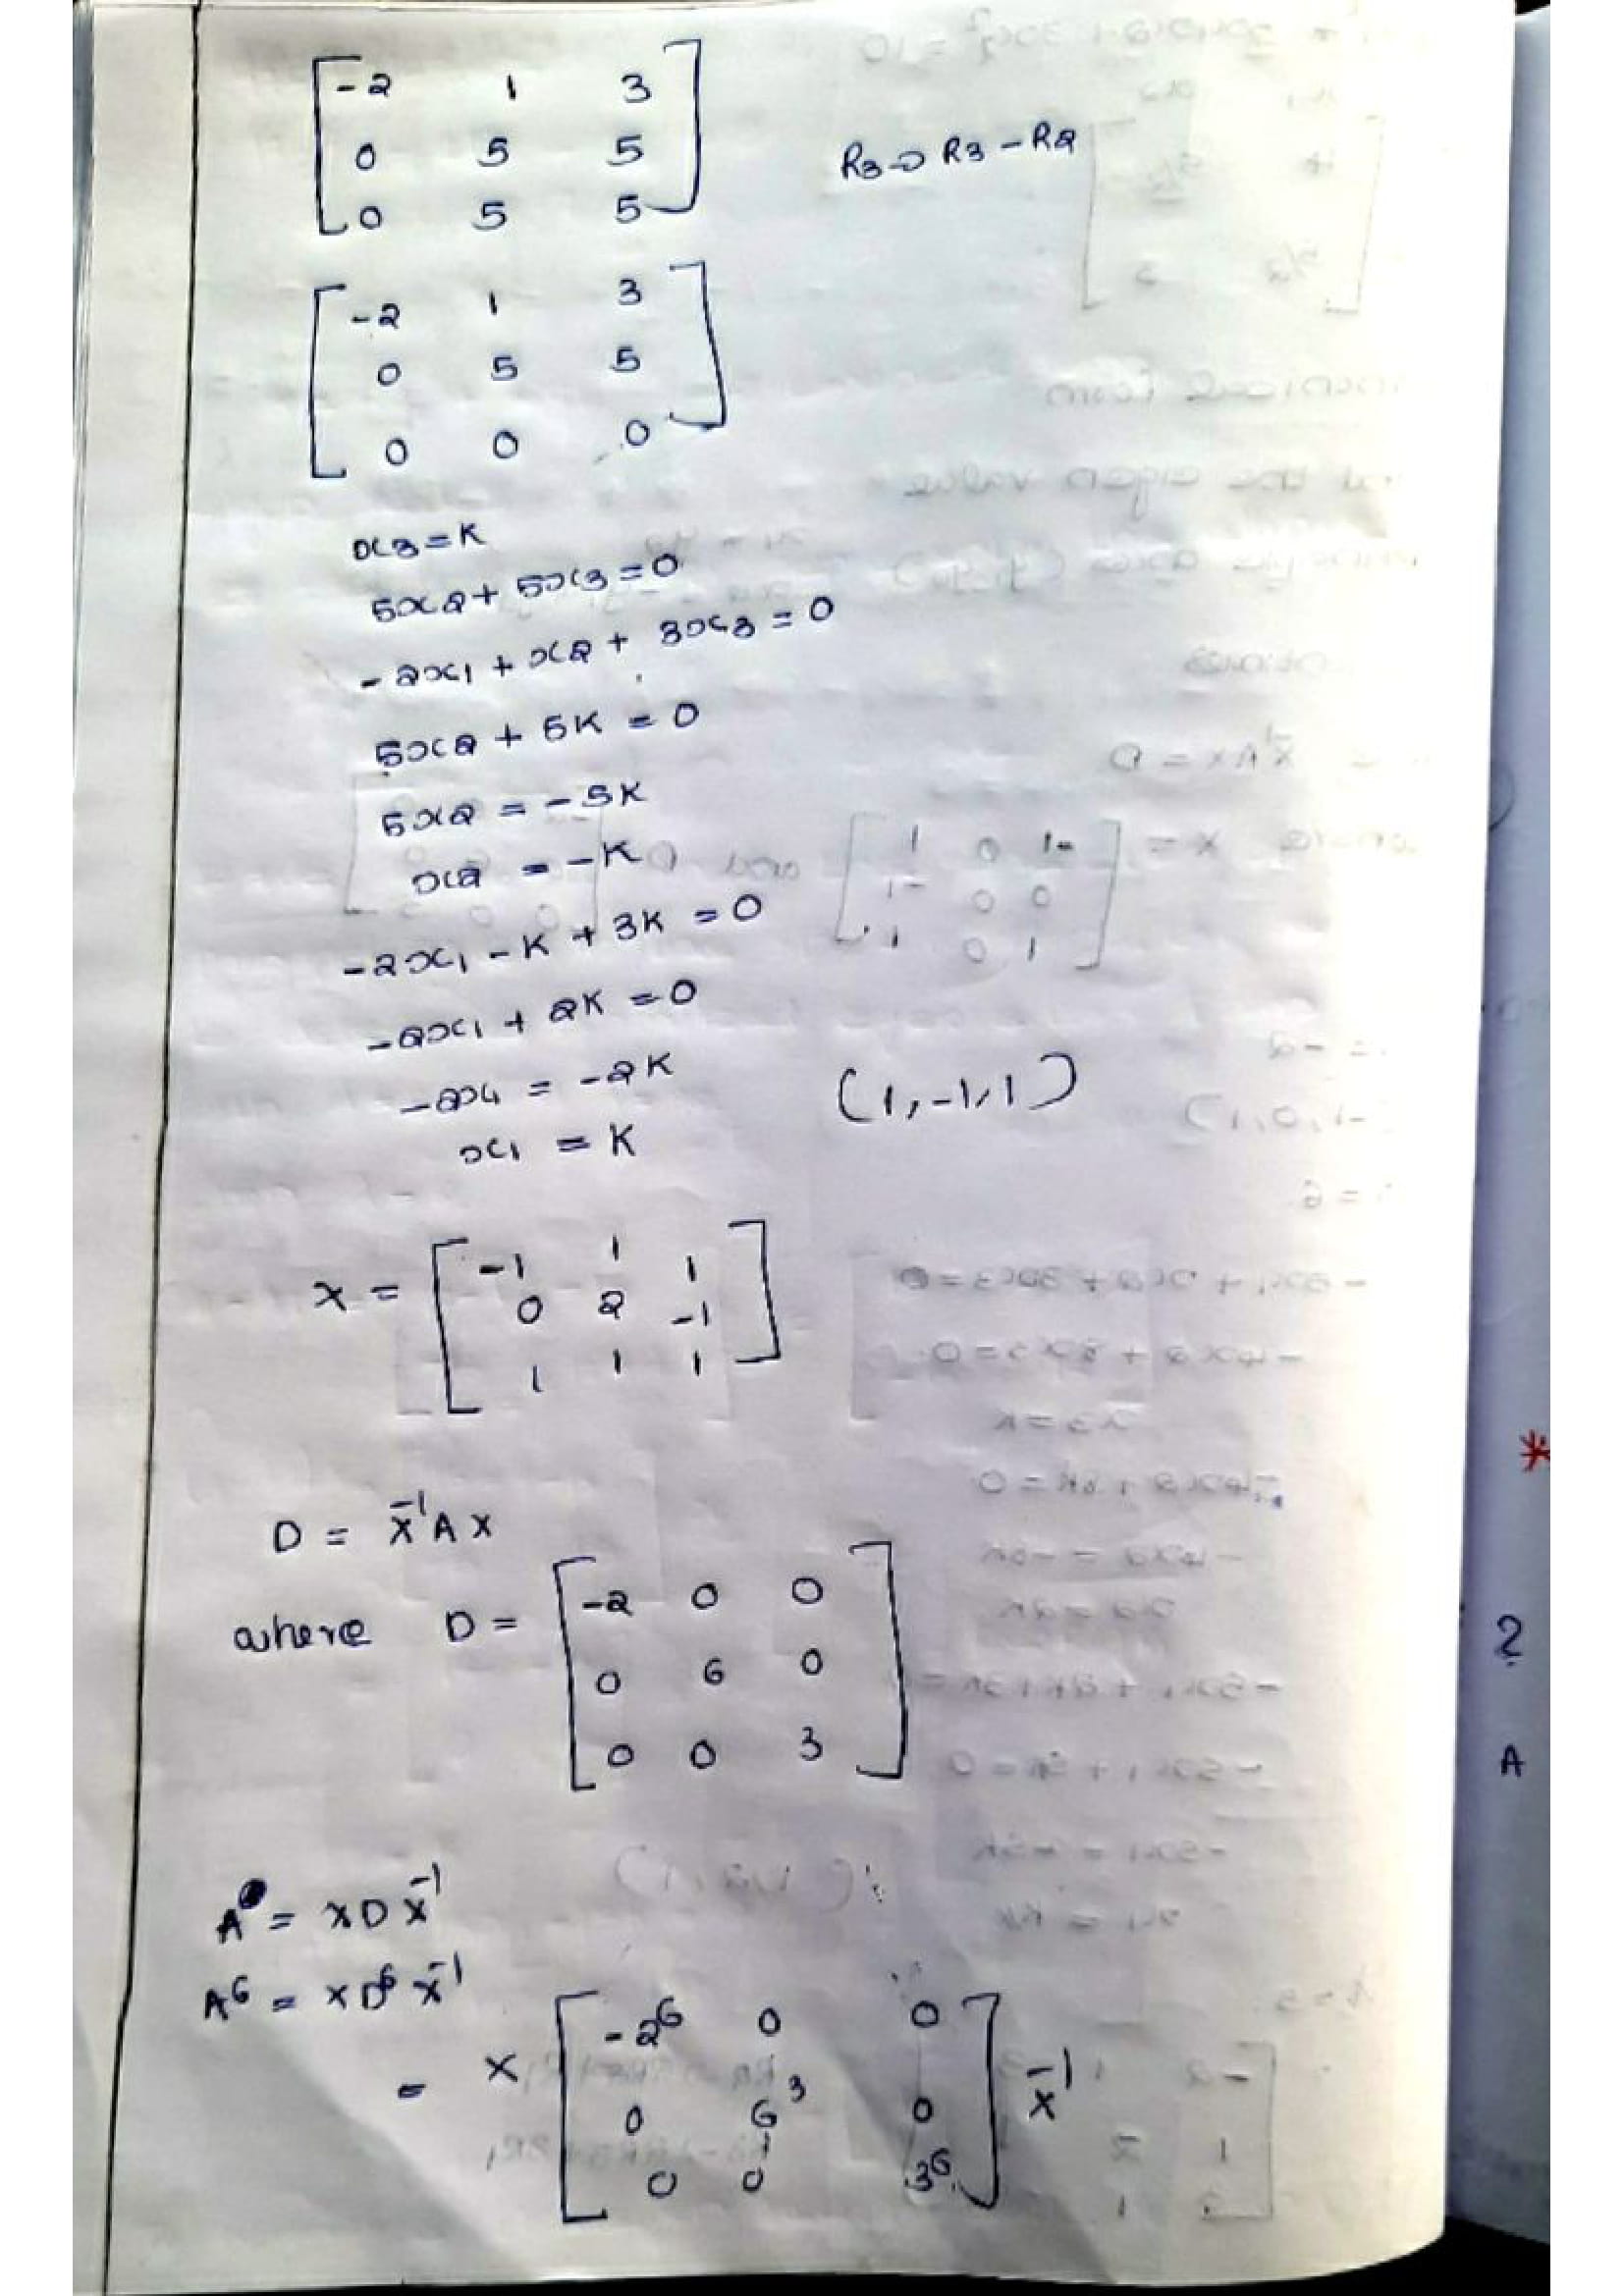 [-2 1 3
0 5 5
0 5 5] R3→R3-R2
[-2 1 3
0 5 5
0 0 0]
x3=K
5x2+5x3=0
-2x1+x2+3x3=0
5x2+5K=0
5x2=-5K
x2=-K
-2x1-K+3K=0
-2x1+2K=0
-2x1=-2K (1,-1,1)
x1=K
X=[-1 1 1
0 2 -1
1 1 1]
D=X^-1AX
where D=[-2 0 0
0 6 0
0 0 3]
A=XDX^-1
A^6=XD^6X^-1
=X[-2^6 0 0
0 6^3 0
0 0 3^6]X^-1
2
A